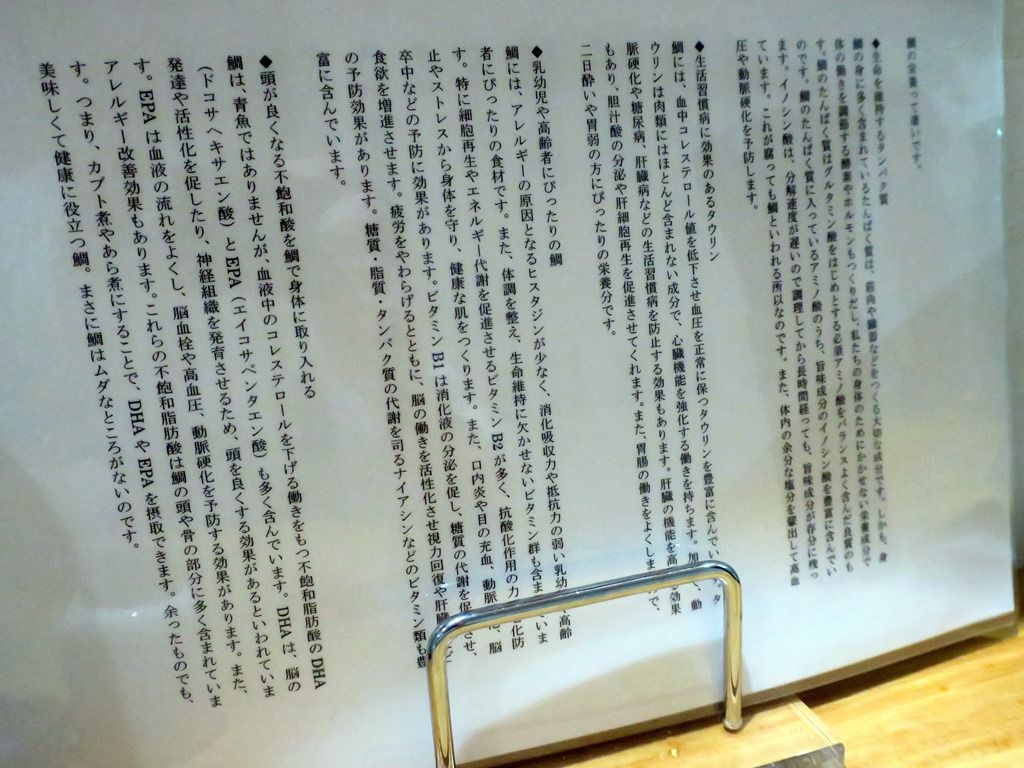 鯛の栄養って凄いです。
◆生命を維持するタンパク質
鯛の身に多く含まれているたんぱく質は、筋肉や臓器などをつくる大切な成分です。しかも、身
体の働きを調節する酵素やホルモンもつくりだし、私たちの身体のためにかかせない栄養成分で
す。鯛のたんぱく質はグルタミン酸をはじめとする必須アミノ酸をバランスよく含んだ良質のも
のです。鯛のたんぱく質に入っているアミノ酸のうち、旨味成分のイノシン酸を豊富に含んでい
ます。イノシン酸は、分解速度が遅いので調理してから長時間経っても、旨味成分が存分に残っ
ています。これが腐っても鯛といわれる所以なのです。また、体内の余分な塩分を輩出して高血
圧や動脈硬化を予防します。
◆生活習慣病に効果のあるタウリン
鯛には、血中コレステロール値を低下させ血圧を正常に保つタウリンを豊富に含んでい タ
ウリンは肉類にはほとんど含まれない成分で、心臓機能を強化する働きを持ちます。加 、動
脈硬化や糖尿病、肝臓病などの生活習慣病を防止する効果もあります。肝臓の機能を高 効果
もあり、胆汁酸の分泌や肝細胞再生を促進させてくれます。また、胃腸の働きをよくしま で、
二日酔いや胃弱の方にぴったりの栄養分です。
◆乳幼児や高齢者にぴったりの鯛
鯛には、アレルギーの原因となるヒスタジンが少なく、消化吸収力や抵抗力の弱い乳幼 高齢
者にぴったりの食材です。また、体調を整え、生命維持に欠かせないビタミン群も含ま いま
す。特に細胞再生やエネルギー代謝を促進させるビタミン B2 が多く、抗酸化作用の力 化防
止やストレスから身体を守り、健康な肌をつくります。また、口内炎や目の充血、動脈 、脳
卒中などの予防に効果があります。ビタミン B1 は消化液の分泌を促し、糖質の代謝を促 せ、
食欲を増進させます。疲労をやわらげるとともに、脳の働きを活性化させ視力回復や肝臓 ど
の予防効果があります。糖質・脂質・タンパク質の代謝を司るナイアシンなどのビタミン類も豊
富に含んでいます。
◆頭が良くなる不飽和酸を鯛で身体に取り入れる
鯛は、青魚ではありませんが、血液中のコレステロールを下げる働きをもつ不飽和脂肪酸の DHA
（ドコサヘキサエン酸）と EPA（エイコサペンタエン酸）も多く含んでいます。DHA は、脳の
発達や活性化を促したり、神経組織を発育させるため、頭を良くする効果があるといわれていま
す。EPA は血液の流れをよくし、脳血栓や高血圧、動脈硬化を予防する効果があります。また、
アレルギー改善効果もあります。これらの不飽和脂肪酸は鯛の頭や骨の部分に多く含まれていま
す。つまり、カブト煮やあら煮にすることで、DHA や EPA を摂取できます。余ったものでも、
美味しくて健康に役立つ鯛。まさに鯛はムダなところがないのです。